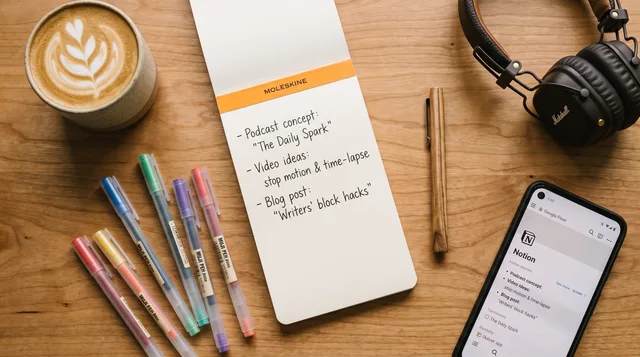 MOLESKINE
- Podcast concept:
"The Daily Spark"
- Video ideas:
stop motion & time-lapse
- Blog post:
"Writers' block hacks"
Marshall
MUJI PEN
MUJI PEN
Google Pixel
Notion
• Podcast concept:
• Video ideas:
stop motion & time lapse
• Blog post:
"Writers' block hacks"
The Daily Spark